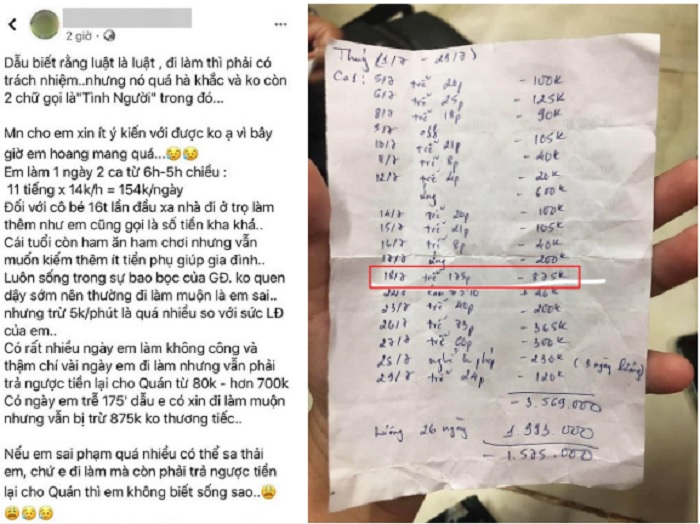 2 giờ
Dẫu biết rằng luật là luật , đi làm thì phải có
trách nhiệm..nhưng nó quá hà khắc và ko còn
2 chữ gọi là"Tình Người" trong đó...
Mn cho em xin ít ý kiến với được ko ạ vì bây
giờ em hoang mang quá...😥😥
Em làm 1 ngày 2 ca từ 6h-5h chiều :
11 tiếng x 14k/h = 154k/ngày
Đối với cô bé 16t lần đầu xa nhà đi ở trọ làm
thêm như em cũng gọi là số tiền kha khá..
Cái tuổi còn ham ăn ham chơi nhưng vẫn
muốn kiếm thêm ít tiền phụ giúp gia đình..
Luôn sống trong sự bao bọc của GĐ. ko quen
dậy sớm nên thường đi làm muộn là em sai..
nhưng trừ 5k/phút là quá nhiều so với sức LĐ
của em..
Có rất nhiều ngày em làm không công và
thậm chí vài ngày em đi làm nhưng vẫn phải
trả ngược tiền lại cho Quán từ 80k - hơn 700k
Có ngày em trễ 175' dẫu e có xin đi làm muộn
nhưng vẫn bị trừ 875k ko thương tiếc..
Nếu em sai phạm quá nhiều có thể sa thải
em, chứ e đi làm mà còn phải trả ngược tiền
lại cho Quán thì em không biết sống sao..😩
😩😥😥
(1/7 - 29/7)
Ca 1: 5/7 trễ 20p - 100k
6/7 trễ 25p - 125k
8/7 trễ 18p - 90k
9/7 off
10/7 trễ 21p - 105k
11/7 trễ 8p - 40k
12/7 trễ 4p - 20k
ứng - 600k
14/7 trễ 20p - 100k
15/7 trễ 21p - 105k
16/7 trễ 8p - 40k
17/7 ứng - 200k
18/7 trễ 175p - 875k
23/7 trễ 40p - 200k
26/7 trễ 73p - 365k
27/7 trễ 60p - 300k
25/7 nghỉ k phép - 230k ( ngày lương)
29/7 trễ 24p - 120k
- 3.569.000
Lương 26 ngày 1.993.000
- 1.575.000